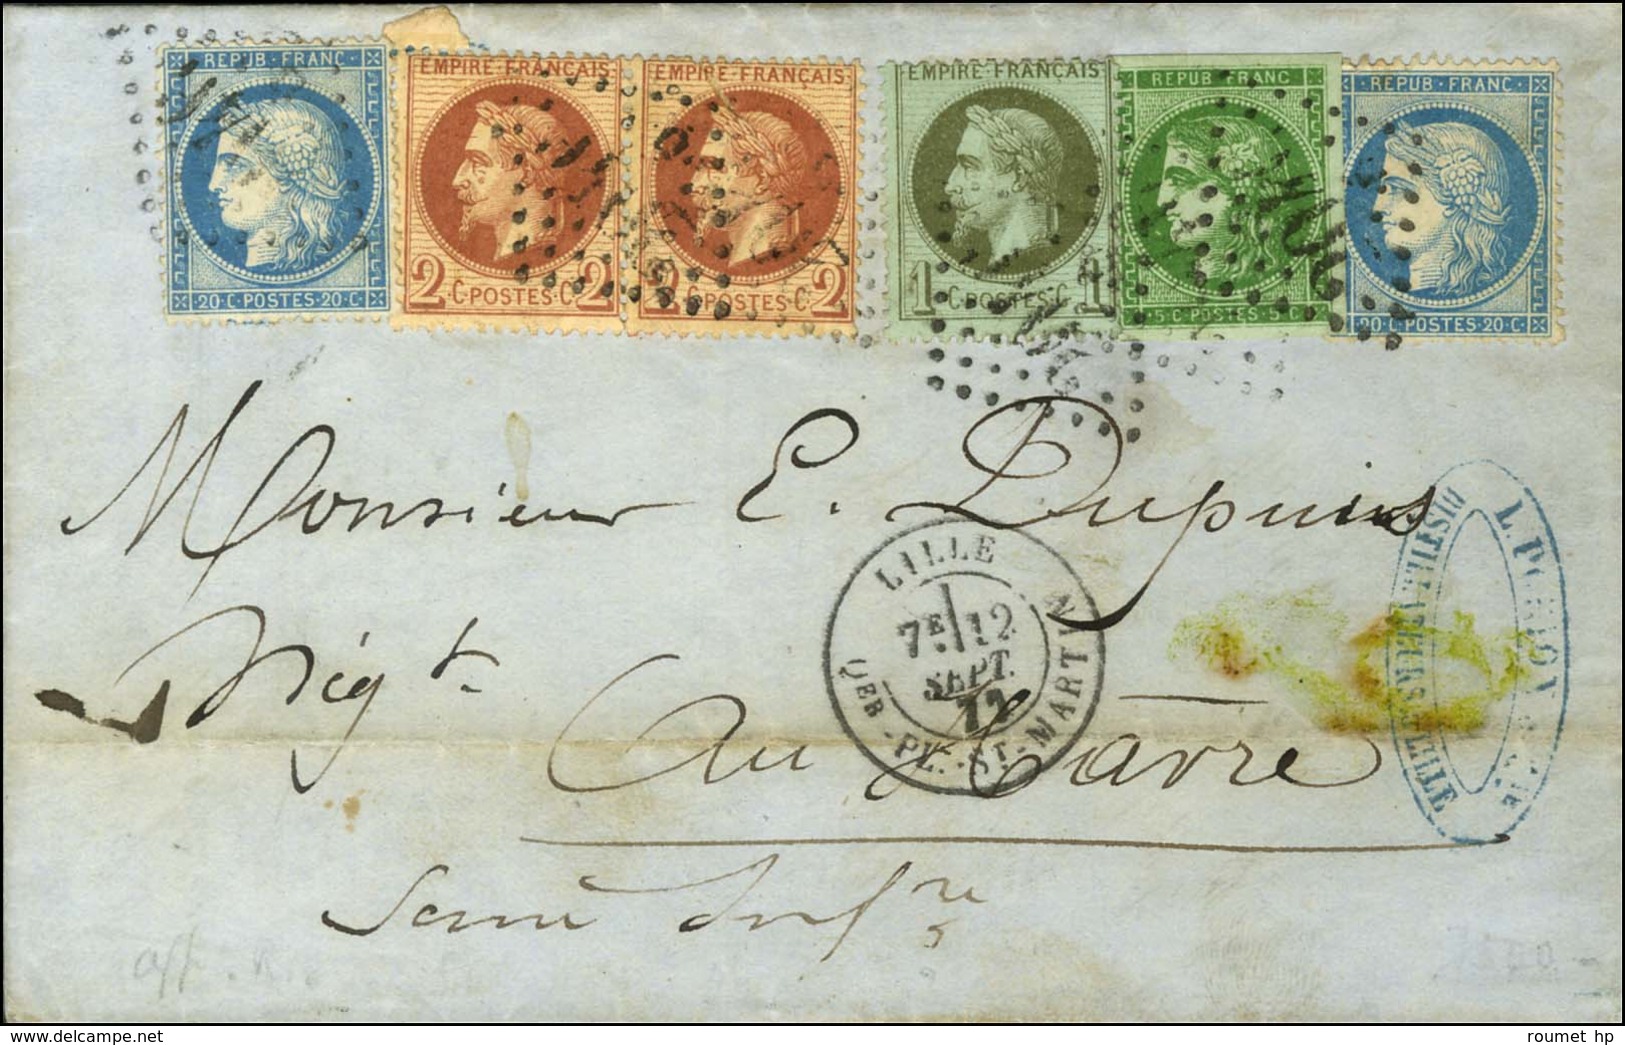 REPUB·FRANC
20·C·POSTES·20·C
EMPIRE·FRANÇAIS
2·C·POSTES·C·2
EMPIRE·FRANÇAIS
2·C·POSTES·C·2
EMPIRE·FRANÇAIS
1·C·POSTES·C·1
REPUB·FRANC
·5·C·POSTES·5·C·
REPUB·FRANC
20·C·POSTES·20·C
Monsieur E. Dupuis
Nég.t
au Havre
Seine Inf.re
LILLE
7E 12
SEPT.
71
QER.-PL.-ST-MARTIN
DISTILLATEURS LILLE
roumet hp